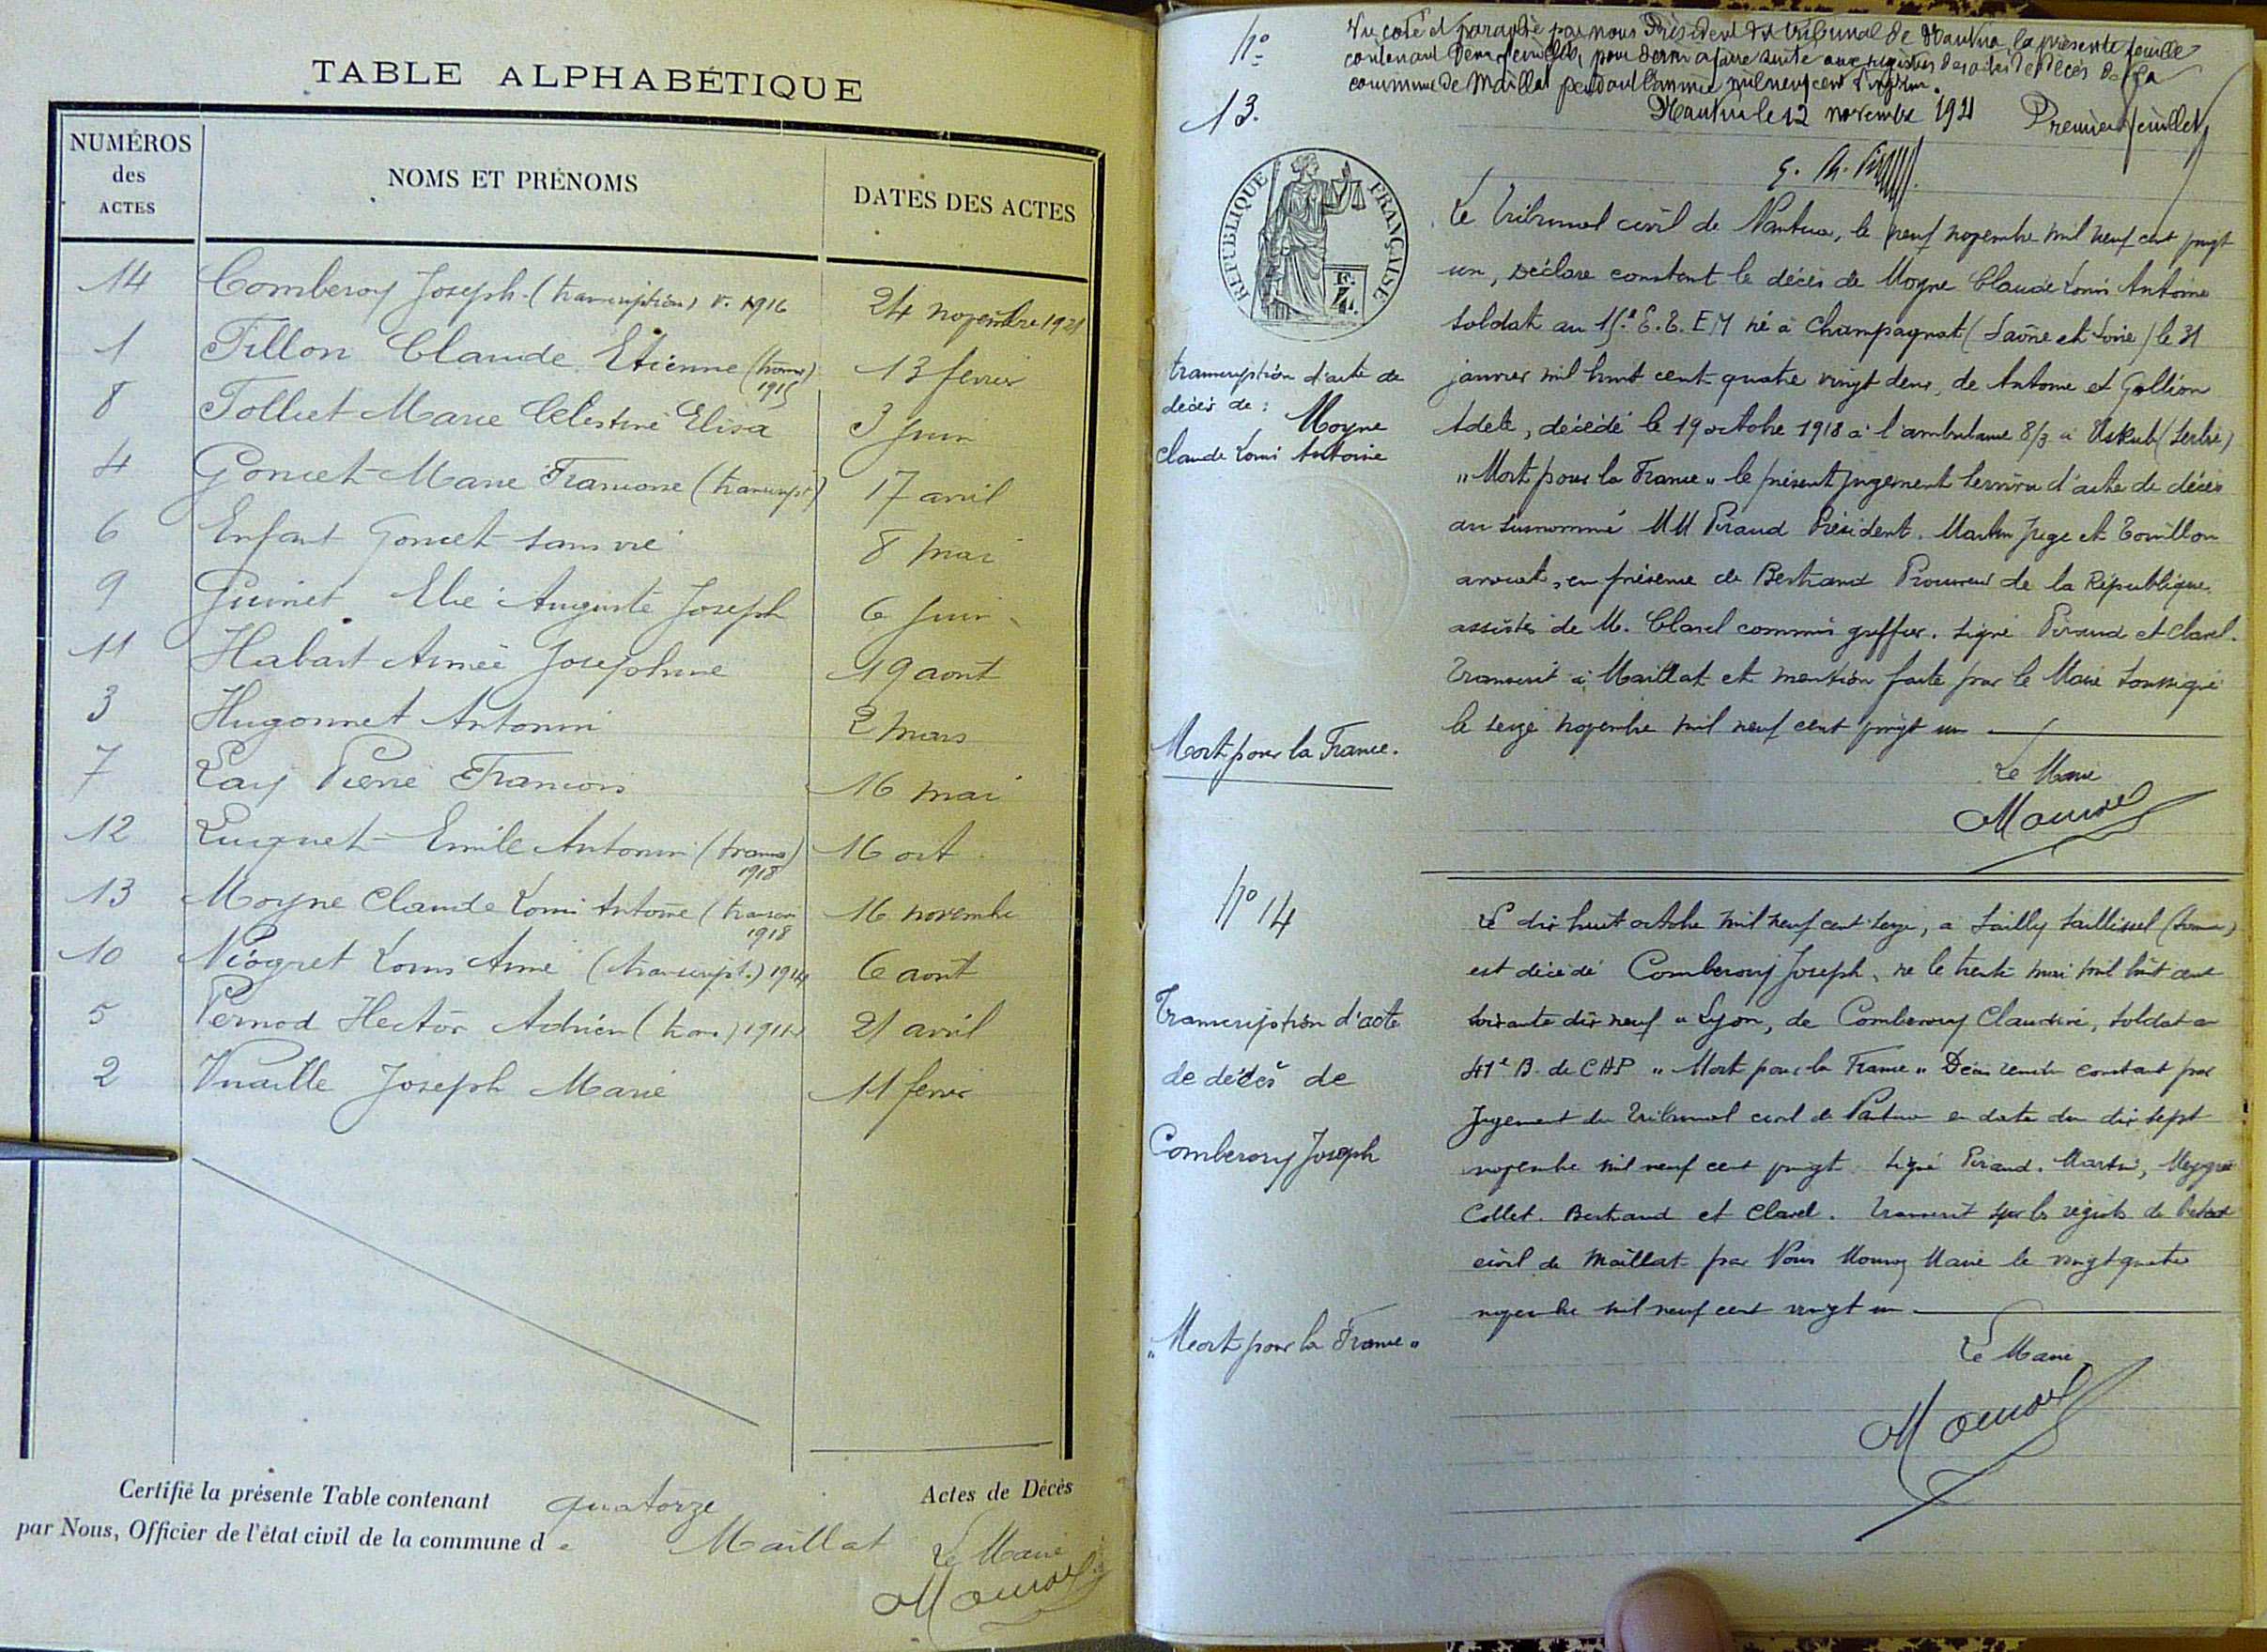 TABLE ALPHABÉTIQUE
NUMÉROS des ACTES
NOMS ET PRÉNOMS
DATES DES ACTES
14 Comberoy Joseph (transcription) 1916 24 novembre 1921
1 Fillon Claude Etienne (trans) 1915 13 fevrier
8 Folliet Marie Célestine Elisa 3 Juin
4 Goncet Marie Francoise (transcript) 17 avril
6 Enfant Goncet sans vie 8 mai
9 Guinet Elie Auguste Joseph 6 Juin
11 Habart Aimée Joséphine 19 août
3 Hugonnet Antonin 2 mars
7 Lay Pierre Francois 16 mai
12 Luquet Emile Antonin (trans) 1918 16 oct
13 Moyne Claude Louis Antoine (transcri 1918 16 novembre
10 Niogret Louis Aimé (transcript.) 1914 6 août
5 Pernod Hector Adrien (trans.) 1914 21 avril
2 Vuaille Joseph Marie 11 fevrier
Certifié la présente Table contenant quatorze Actes de Décès
par Nous, Officier de l'état civil de la commune de Maillat
Le Maire
No
Vu coté et paraphé par nous Président du tribunal de Nantua, la présente feuille
contenant deux feuillets, pour servir à faire suite aux registres des actes de décès de la
commune de Maillat pendant l'année mil neuf cent vingt un.
Nantua le 12 novembre 1921 Premier feuillet
13.
RÉPUBLIQUE FRANÇAISE
transcription d'acte de
décès de : Moyne
Claude Louis Antoine
Mort pour la France.
Le Tribunal civil de Nantua, le neuf novembre mil neuf cent vingt
un, déclare constant le décès de Moyne Claude Louis Antoine
soldat au 15e E. T. E M né à Champagnat (Saône et Loire) le 31
janvier mil huit cent quatre vingt deux, de Antoine et Gallion
Adele, décédé le 19 octobre 1918 à l'ambulance 8/3 à Uskub (Serbie)
"Mort pour la France" le présent jugement servira d'acte de décès
au susnommé MM Piraud Président. Martin Juge et Touillon
avocat, en présence de Bertrand Procureur de la République,
assistés de M. Clavel commis greffier. Signé Piraud et Clavel.
Transcrit à Maillat et mention faite par le Maire soussigné
le seize novembre mil neuf cent vingt un
Le Maire
No 14
Transcription d'acte
de décès de
Comberoy Joseph
"Mort pour la France"
Le dix huit octobre mil neuf cent seize, à Sailly Saillisel (Somme)
est décédé Comberouy Joseph, né le trente mai mil huit cent
soixante dix neuf à Lyon, de Comberouy Claudine, soldat au
41e B. de CAP "Mort pour la France" Décès rendu constant par
Jugement du Tribunal civil de Nantua en date du dix sept
novembre mil neuf cent vingt. Signé Piraud. Martin,
Collet. Bertrand et Clavel. Transcrit sur les registres de l'état
civil de Maillat par Nous Maire le vingt quatre
novembre mil neuf cent vingt un
Le Maire